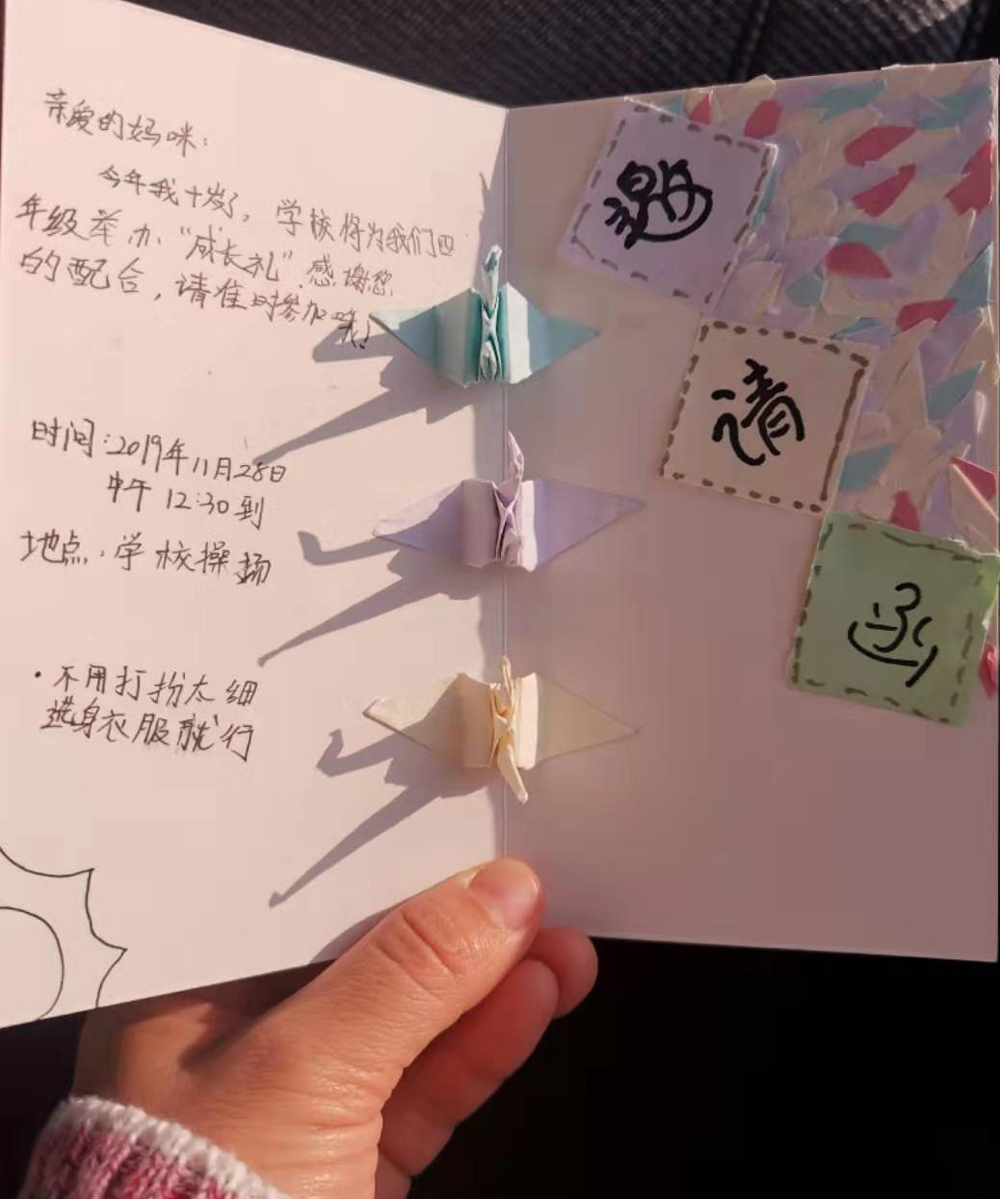 亲爱的妈咪：
今年我十岁了，学校将为我们四
年级举办“成长�”.感谢您
的配合，请准时参加哦！
时间：2019年11月28日
中午 12:30到
地点：学校操场
·不用打扮太细
选身衣服就行
邀
请
函